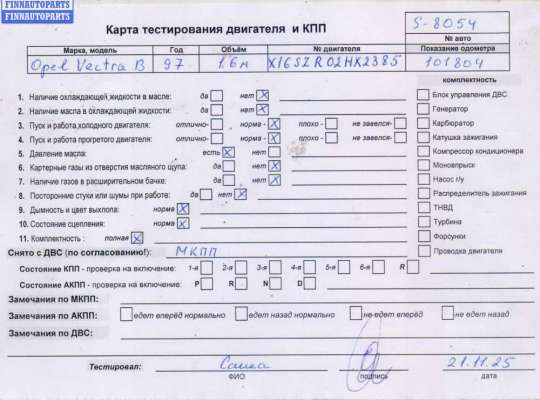 FINNAUTOPARTS
Карта тестирования двигателя и КПП
S-8054
№ авто
Марка, модель Год Объём № двигателя Показание одометра
Opel Vectra B 97 1.6м X16SZR02HX2385 101804
комплектность
1. Наличие охлаждающей жидкости в масле: да нет X
Блок управления ДВС
2. Наличие масла в охлаждающей жидкости: да нет X
Генератор
3. Пуск и работа холодного двигателя: отлично- норма - X плохо - не завелся-
Карбюратор
4. Пуск и работа прогретого двигателя: отлично- норма - X плохо - не завелся-
Катушка зажигания
5. Давление масла: есть X нет
Компрессор кондиционера
6. Картерные газы из отверстия масляного щупа: да нет X
Моновпрыск
7. Наличие газов в расширительном бачке: да нет X
Насос г/у
8. Посторонние стуки или шумы при работе: да нет X
Распределитель зажигания
9. Дымность и цвет выхлопа: норма X
ТНВД
10. Состояние сцепления: норма X
Турбина
11. Комплектность : полная X
Форсунки
Снято с ДВС (по согласованию!): МКПП
Проводка двигателя
Состояние КПП - проверка на включение: 1-я 2-я 3-я 4-я 5-я 6-я R
Состояние АКПП - проверка на включение: P R N D
Замечания по МКПП:
Замечания по АКПП: едет вперёд нормально едет назад нормально не едет вперёд не едет назад
Замечания по ДВС:
Тестировал: Саша 21.11.25
ФИО подпись дата